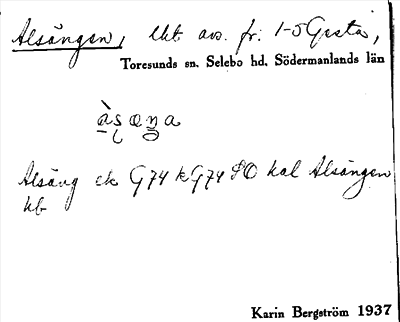 Alsängen, lht avs. fr. 1-5 Gesta,
Toresunds sn. Selebo hd. Södermanlands län
àsæŋa
Alsäng ek G74 k G74 SO kal Alsängen
hb
Karin Bergström 1937